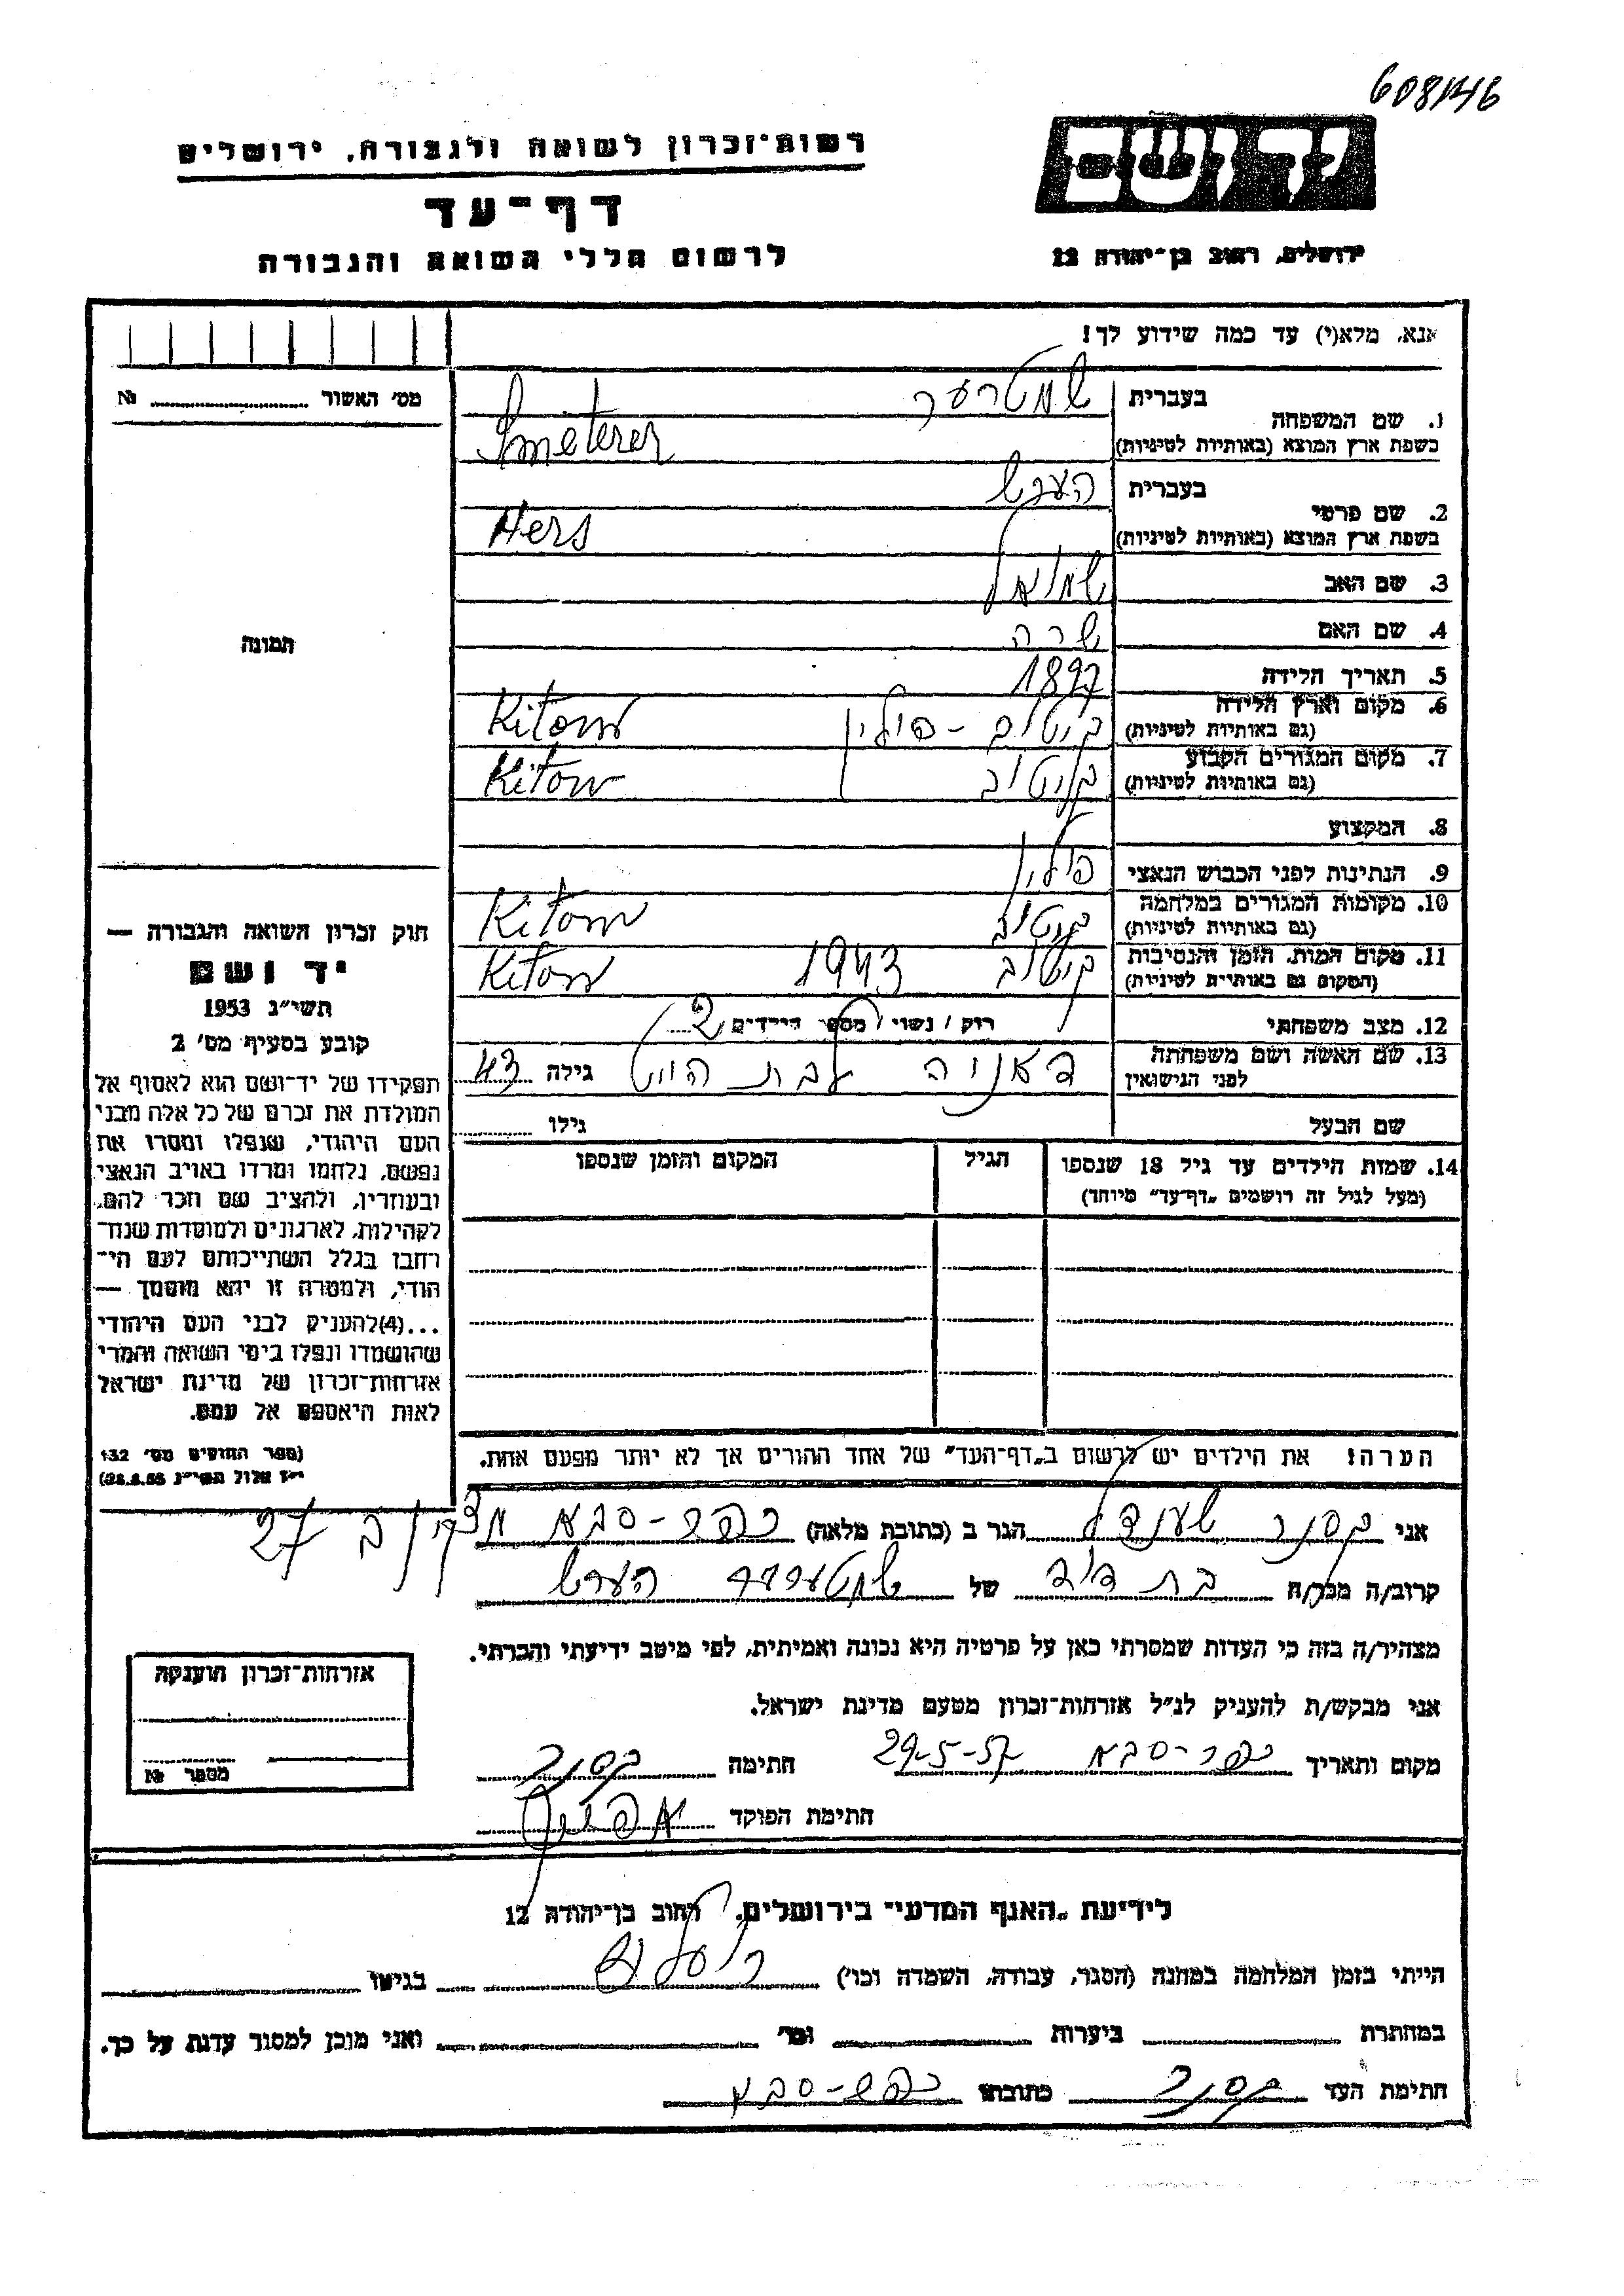 רשות־זכרון לשואה ולגבורה, ירושלים
דף־עד
לרשום חללי השואה והגבורה
יד ושם
ירושלים, רחוב בן־יהודה 12
אנא, מלא(י) עד כמה שידוע לך!
מס' האשור № 
1. שם המשפחה
בעברית שמטרער
בשפת ארץ המוצא (באותיות לטיניות) Smeterer
2. שם פרטי
בעברית הערש
בשפת ארץ המוצא (באותיות לטיניות) Hers
3. שם האב שמואל
4. שם האם שרה
5. תאריך הלידה 1897
6. מקום וארץ הלידה (גם באותיות לטיניות) קיטוב - פולין Kitow
7. מקום המגורים הקבוע (גם באותיות לטיניות) קיטוב Kitow
8. המקצוע
9. הנתינות לפני הכבוש הנאצי פולין
10. מקומות המגורים במלחמה (גם באותיות לטיניות) קיטוב Kitow
11. מקום המות, הזמן והנסיבות (המקום גם באותיות לטיניות) קיטוב 1943 Kitow
12. מצב משפחתי רוק / נשוי / מספר הילדים 2
13. שם האשה ושם משפחתה לפני הנישואין לבית גילה 43
שם הבעל גילו
14. שמות הילדים עד גיל 18 שנספו (מעל לגיל זה רושמים „דף־עד" מיוחד)
הגיל
המקום והזמן שנספו
תמונה
חוק זכרון השואה והגבורה —
יד ושם
תשי"ג 1953
קובע בסעיף מס' 2
תפקידו של יד־ושם הוא לאסוף אל
המולדת את זכרם של כל אלה מבני
העם היהודי, שנפלו ומסרו את
נפשם, נלחמו ומרדו באויב הנאצי
ובעוזריו, ולהציב שם וזכר להם,
לקהילות, לארגונים ולמוסדות שנח־
רבו בגלל השתייכותם לעם הי־
הודי, ולמטרה זו יהא מוסמך —
...(4)להעניק לבני העם היהודי
שהושמדו ונפלו בימי השואה והמרי
אזרחות־זכרון של מדינת ישראל
לאות היאספם אל עמם.
(ספר החוקים מס' 132
י"ז אלול תשי"ג 28.8.53)
הערה! את הילדים יש לרשום ב„דף־העד" של אחד ההורים אך לא יותר מפעם אחת.
אני קסנר הגר ב (כתובת מלאה) כפר-סבא 27
קרוב/ה מכר/ה בת דוד של הערש
מצהיר/ה בזה כי העדות שמסרתי כאן על פרטיה היא נכונה ואמיתית, לפי מיטב ידיעתי והכרתי.
אני מבקש/ת להעניק לנ"ל אזרחות־זכרון מטעם מדינת ישראל.
מקום ותאריך כפר-סבא 29-5-57 חתימה קסנר
חתימת הפוקד
אזרחות־זכרון הוענקה
מספר №
לידיעת „האגף המדעי" בירושלים, רחוב בן־יהודה 12
הייתי בזמן המלחמה במחנה (הסגר, עבודה, השמדה וכו') בגיטו
במחתרת ביערות וכו' ואני מוכן למסור עדות על כך.
חתימת העד קסנר כתובתו כפר-סבא